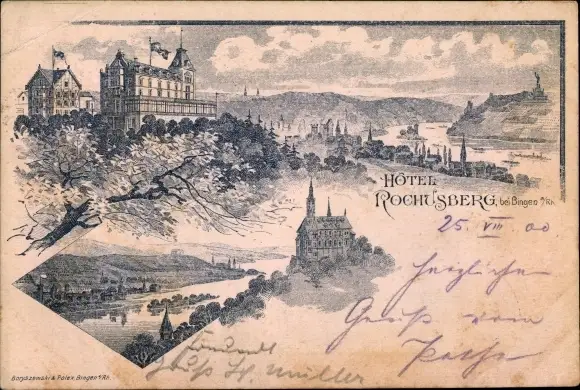 HÔTEL
ROCHUSBERG, bei Bingen a/Rh.
25. VIII. 00
Herzlichen
Gruß vom
Gruß H. Müller
Boryszewski & Polex, Bingen a/Rh.